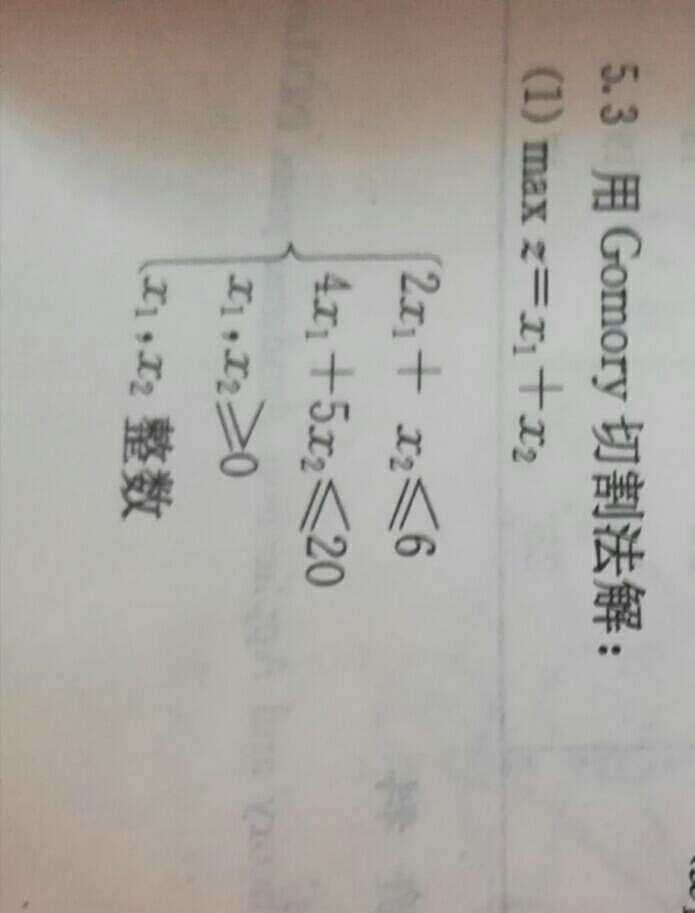 5.3 用 Gomory 切割法解：
(1) max z=x₁+x₂
2x₁+ x₂≤6
4x₁+5x₂≤20
x₁,x₂≥0
x₁,x₂ 整数